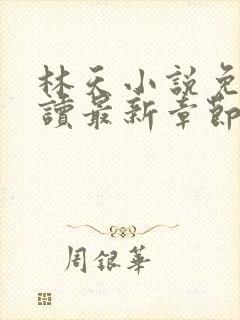 林天小説免
讀最新章節
周銀華